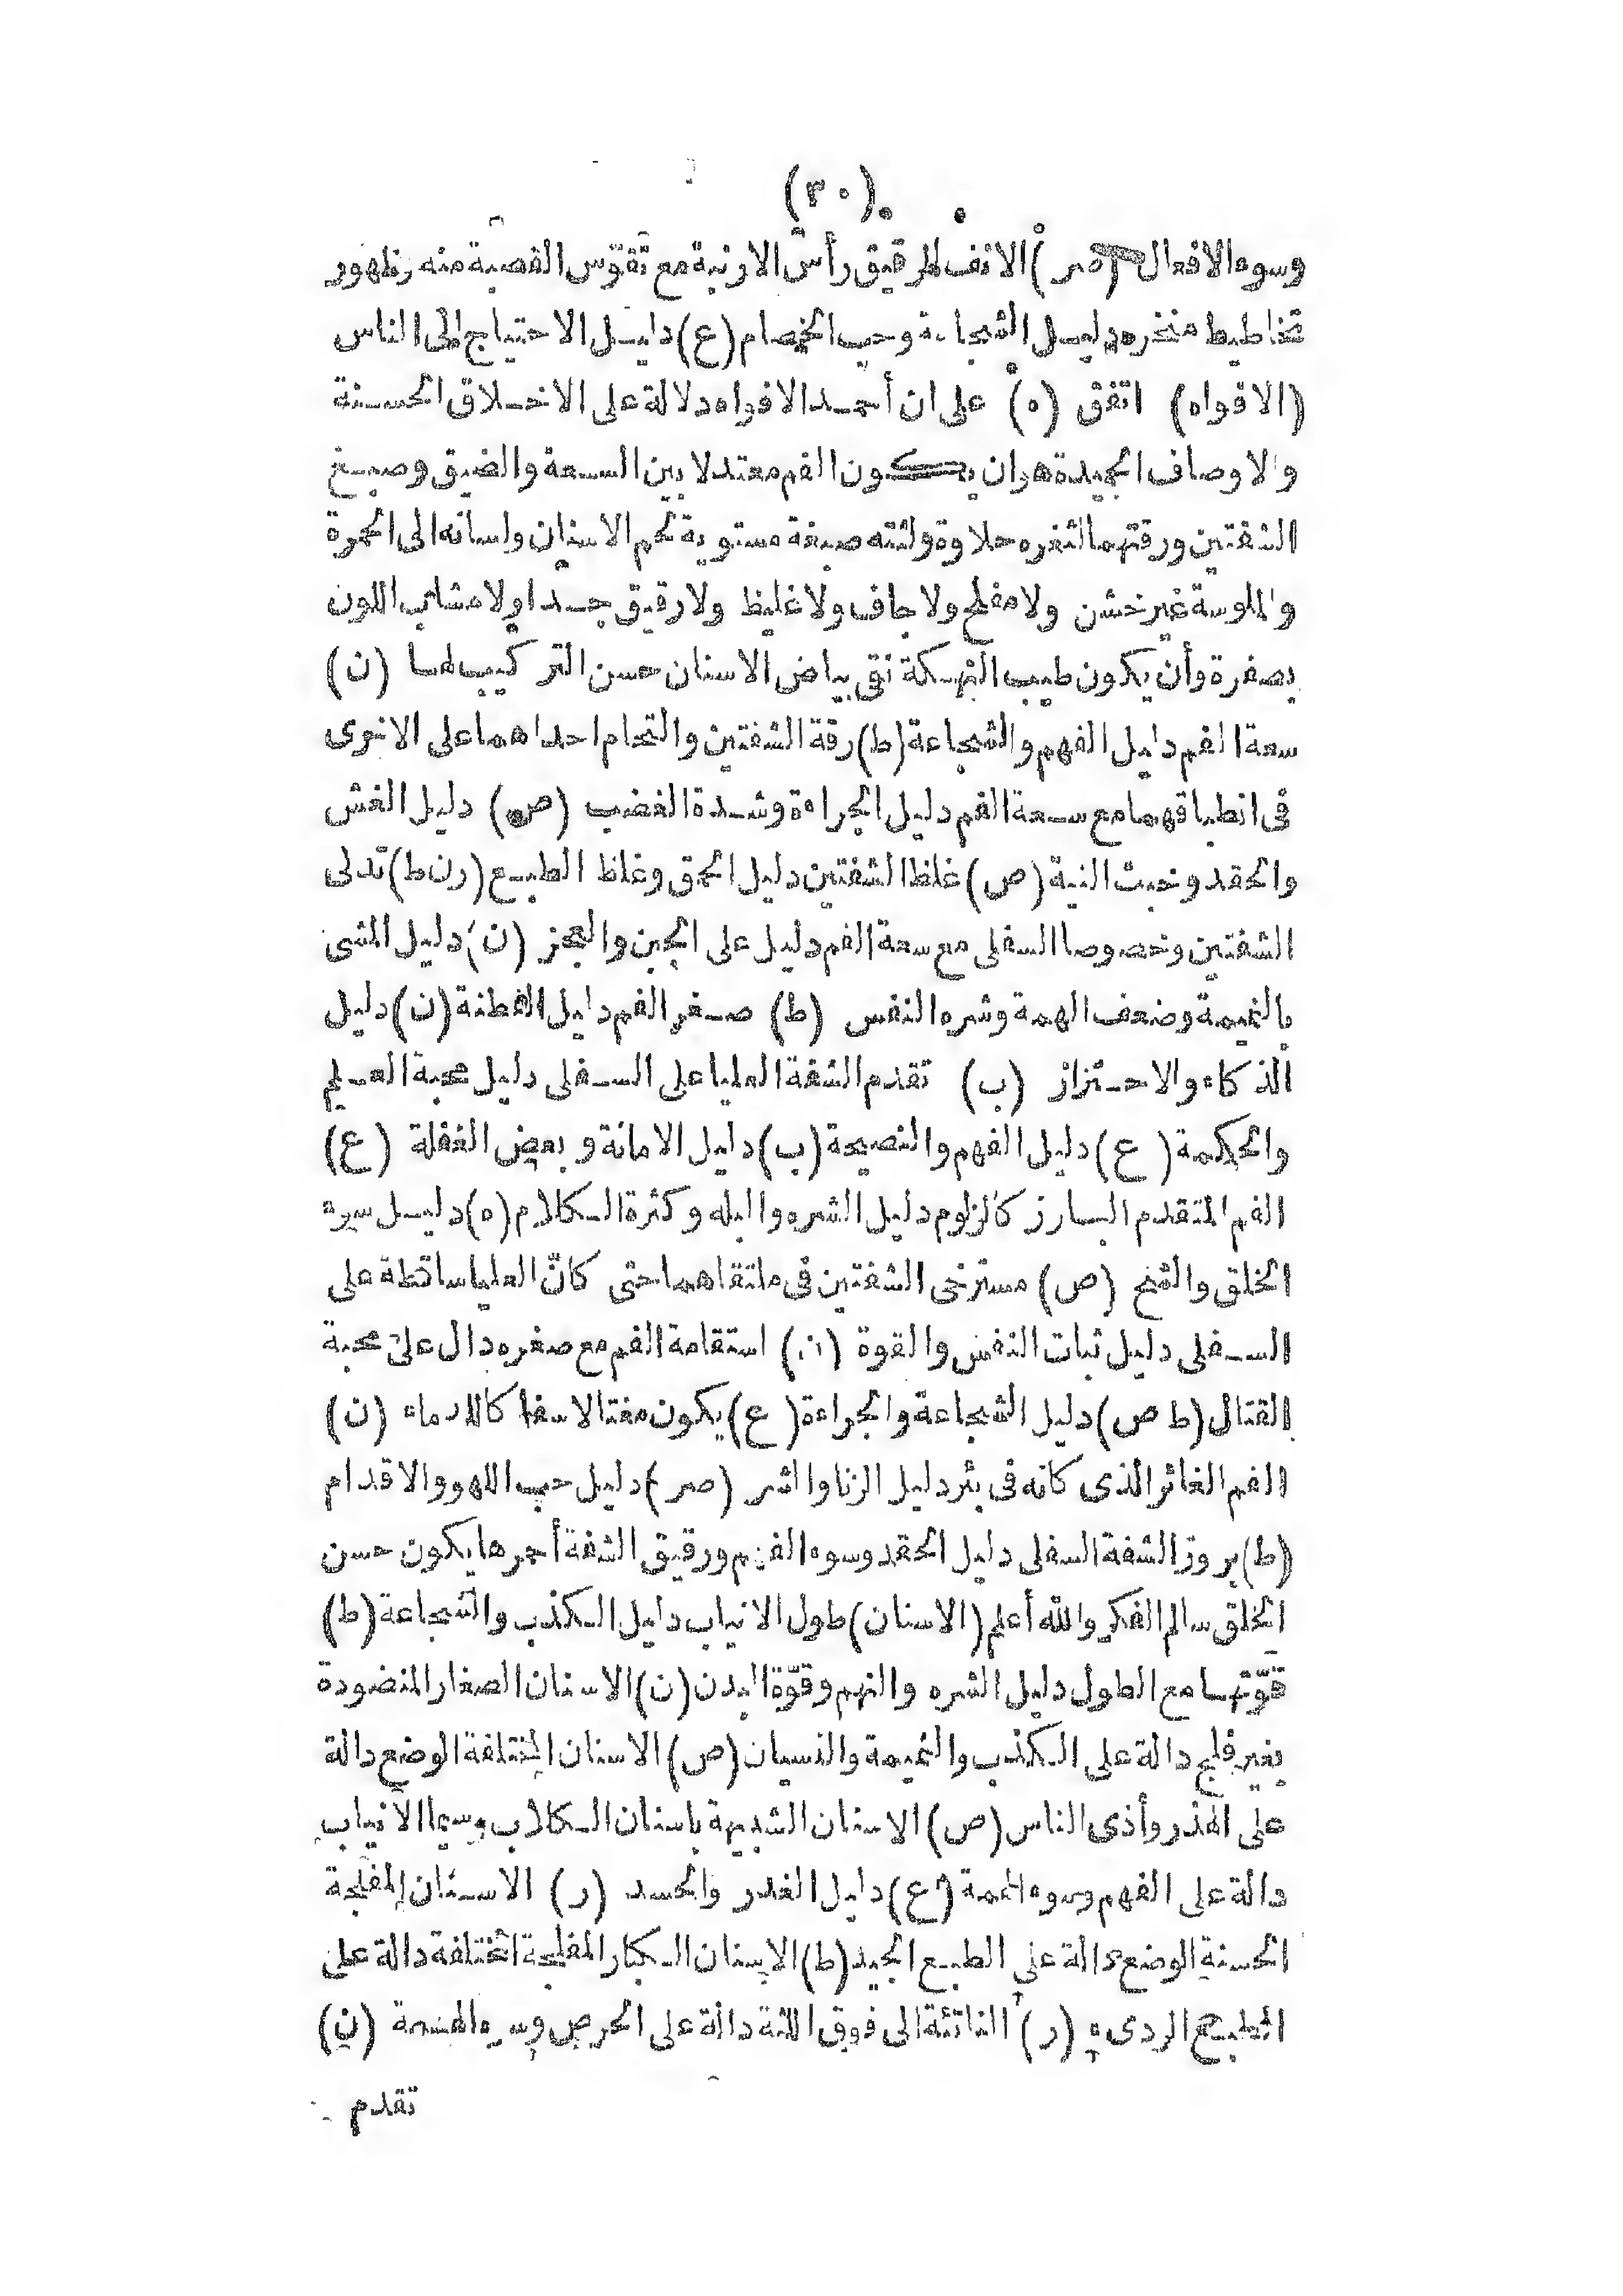 (٣٠)
وسوء الافعال (صر) الانف الرقيق رأس الارنبة مع تقوّس القصبة منه وظهور
تخاطيط منخره دليل الشجاعة وحب الخصام (ع) دليل الاحتياج الى الناس
(الافواه) اتفق (ه) على ان أحمد الافواه دلالة على الاخلاق الحسنة
والاوصاف الجيدة هو ان يكون الفم معتدلا بين السعة والضيق وصبغ
الشفتين ورقتهما لثغره حلاوة ولثته صبغة مستوية لحم الاسنان ولسانه الى الحمرة
والملوسة غير خشن ولا مفلج ولا جاف ولا غليظ ولا رقيق جدا ولا مشائب اللون
بصفرة وأن يكون طيب النهكة نقى بياض الاسنان حسن التركيب لها (ن)
سعة الفم دليل الفهم والشجاعة (ط) رقة الشفتين والتحام احداهما على الاخرى
فى انطباقهما مع سعة الفم دليل الجراءة وشدة الغضب (ص) دليل الغش
والحقد وخبث النية (ص) غلظ الشفتين دليل الحمق وغلظ الطبع (ر ن ط) تدلى
الشفتين وخصوصا السفلى مع سعة الفم دليل على الجبن والعجز (ن) دليل المشى
بالنميمة وضعف الهمة وشره النفس (ط) صغر الفم دليل الفطنة (ن) دليل
الذكاء والاحتراز (ب) تقدم الشفة العليا على السفلى دليل محبة العلم
والحكمة (ع) دليل الفهم والنصيحة (ب) دليل الامانة وبعض الغفلة (ع)
الفم المتقدم البارز كالزلوم دليل الشره والبله وكثرة الكلام (ه) دليل سوء
الخلق والشح (ص) مسترخى الشفتين فى ملتقاهما حتى كانّ العليا ساقطة على
السفلى دليل ثبات النفس والقوة (ن) استقامة الفم مع صغره دال على محبة
القتال (ط ص) دليل الشجاعة والجراءة (ع) يكون مفتا الاسفا كالدرماء (ن)
الفم الغائر الذى كانه فى بئر دليل الزنا والشر (صر) دليل حب اللهو والاقدام
(ط) بروز الشفة السفلى دليل الحقد وسوء الفهم ورقيق الشفة أحمرها يكون حسن
الخلق سالم الفكر والله أعلم (الاسنان) طول الانياب دليل الكذب والشجاعة (ط)
قوّتها مع الطول دليل الشره والنهم وقوّة البدن (ن) الاسنان الصغار المنضودة
بغير فلج دالة على الكذب والنميمة والنسيان (ص) الاسنان المختلفة الوضع دالة
على الهذر وأذى الناس (ص) الاسنان الشبيهة باسنان الكلاب وسيما الانياب
دالة على الفهم وسوء الهمة (ع) دليل الغدر والحسد (ر) الاسنان المفلجة
الحسنة الوضع دالة على الطبع الجيد (ط) الاسنان الكبار المفلجة المختلفة دالة على
الطبع الردىء (ر) الناتئة الى فوق اللثة دالة على الحرص وسوء الهمة (ن)
تقدم